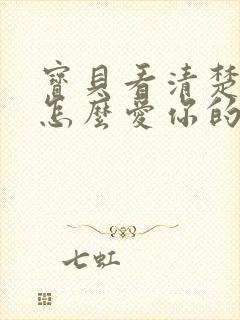 寶貝看清楚
怎麼愛你的
七虹